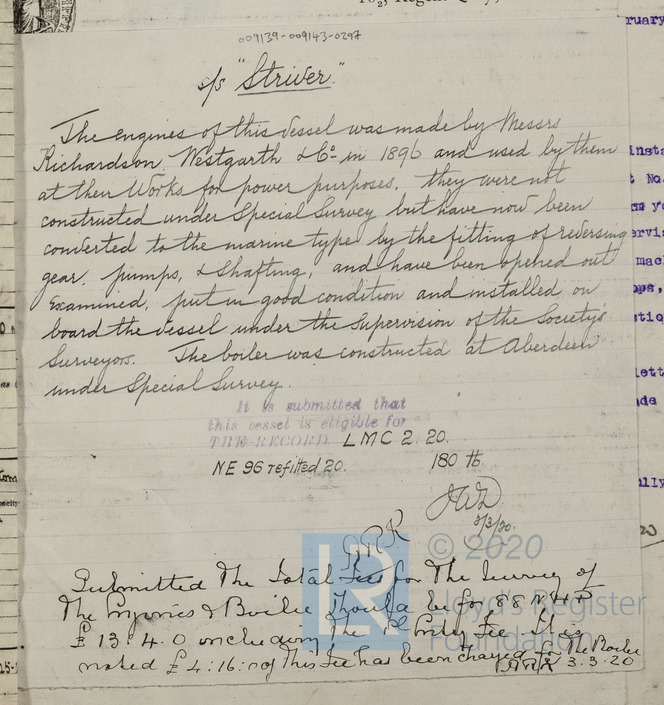 009139-009143-0297
s/s "Striver"
The engines of this vessel was made by Messrs
Richardson, Westgarth & Co in 1896 and used by them
at their Works for power purposes, they were not
constructed under Special Survey but have now been
converted to the marine type by the fitting of reversing
gear, pumps, & Shafting, and have been opened out
Examined, put in good condition and installed on
board the vessel under the supervision of the Society's
Surveyors. The boiler was constructed at Aberdeen
under Special Survey.
It is submitted that
this vessel is eligible for
THE RECORD LMC 2. 20.
NE 96 refitted 20. 180 lb
3/3/20.
© 2020
Lloyd's Register
Foundation
Submitted The Total Fee for The Survey of
The Engines & Boiler should be for 88 NHP
£ 13:4.0 including The Fee. It is
noted £ 4:16:0 of This Fee has been charged for The Boiler
3.3.20